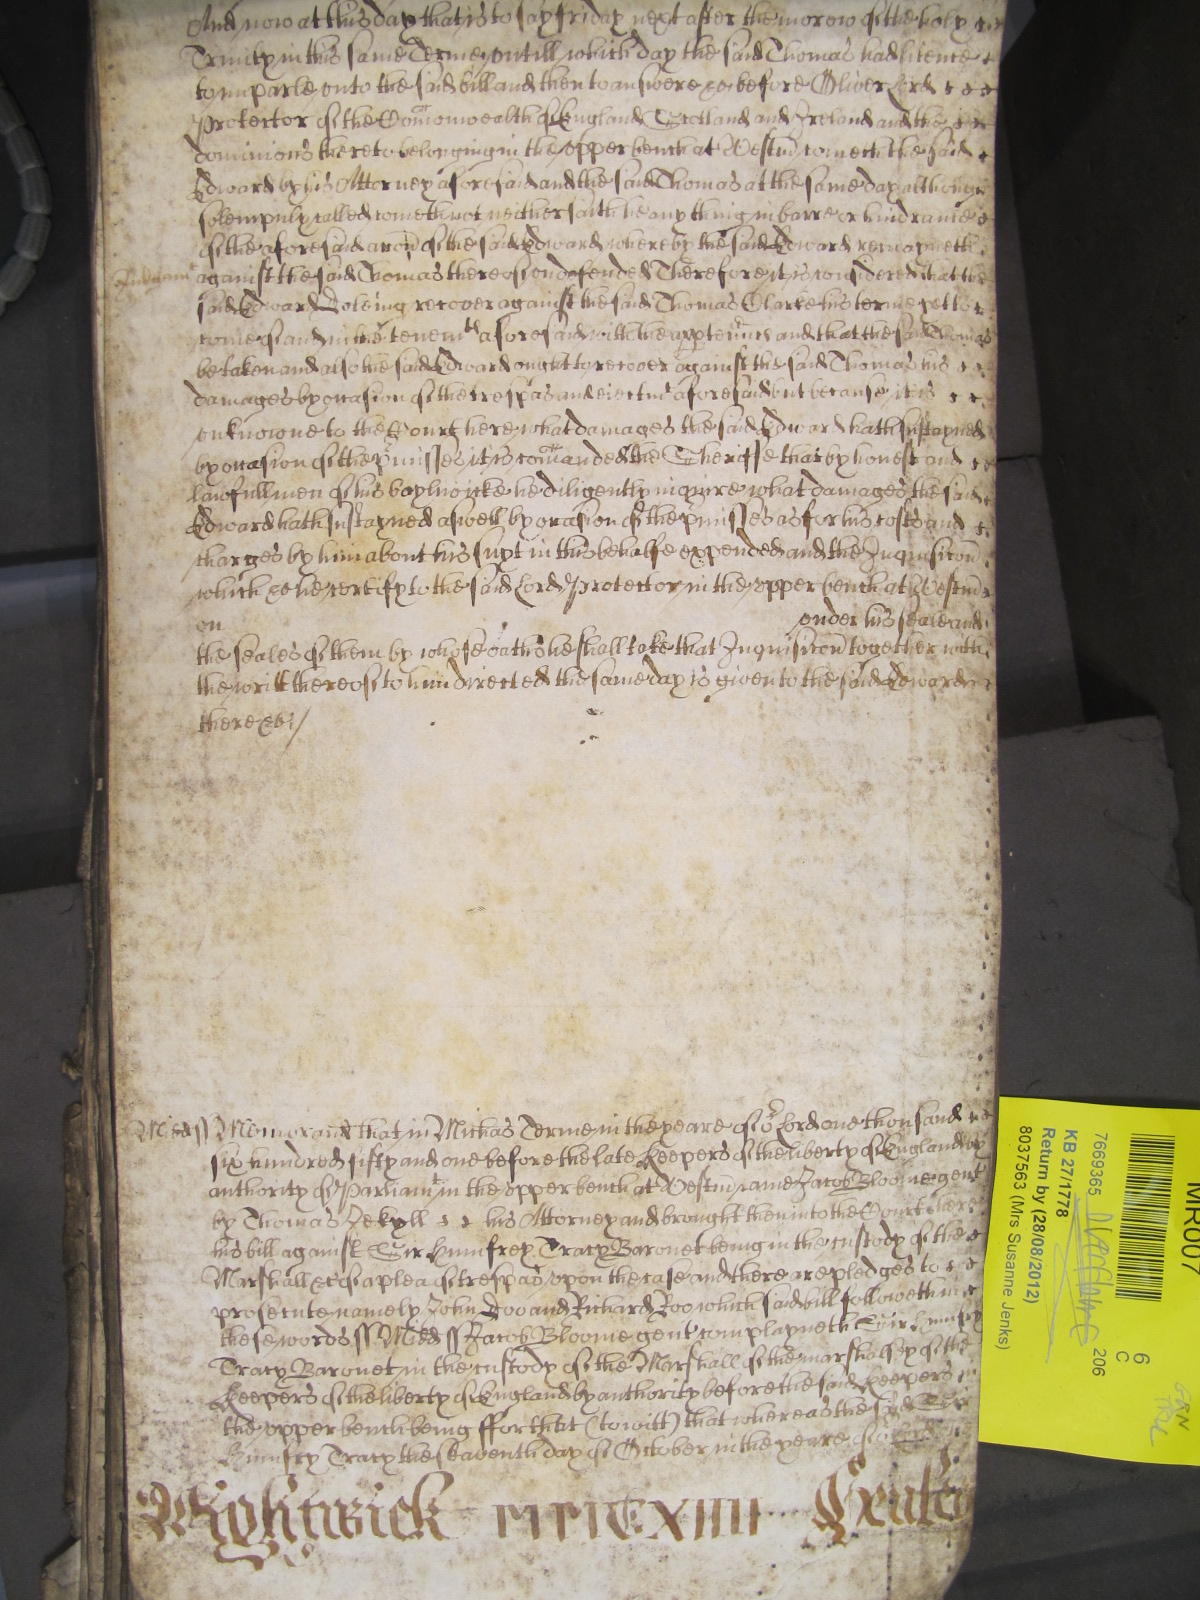 And now at this day that is to say friday next after the morow of the holy
Trinity in this same Terme untill which day the said Thomas had licence
to imparle unto the said bill and then to answere &c before Oliver Lord
Protector of the Comonwealth of England Scotland and Ireland and the
dominions thereto belonging in the upper bench at Westm cometh the said
Edward by his Attorney aforesaid and the said Thomas at the same day although
solempnly called cometh not neither saith he any thing in barre or hindrance
of the aforesaid accon of the said Edward whereby the said Edward remayneth
against the said Thomas thereof undefended Therefore it is considered that the
said Edward recover against the said Thomas Clarke his terme yet to
come of and in the tenemts aforesaid with the apptennces and that the said Thomas
be taken and also the said Edward ought to recover against the said Thomas his
damages by occasion of the trespas and eiectmt aforesaid but because it is
unknowne to the Court here what damages the said Edward hath sustayned
by occasion of the pmisses it is comanded the Sheriffe that by honest and
lawfull men of his baylwicke he diligently inquire what damages the said
Edward hath sustayned aswell by occasion of the pmisses as for his costs and
charges by him about his suyt in this behalfe expended and the Inquisicon
which &c he certify to the said Lord Protector in the upper bench at Westm
on under his seale and
the seales of them by whose oaths he shall take that Inquisicon together with
the writt thereof to him directed the same day is given to the said Edward
there &c /
Midds Memorand that in Michas Terme in the yeare of or Lord one thousand
six hundred fifty and one before the late Keepers of the liberty of England by
authority of Parliamt in the upper bench at Westm came Jacob Bloome gent
by Thomas Jekyll his Attorney and brought then into the Court here
his bill against Sir Humfrey Tracy Baronet being in the custody of the
Marshall &c of a plea of trespas upon the case and there are pledges to
prosecute namely John Doo and Richard Roo which said bill followeth in
these words ss Midds ss Jacob Bloome gent complayneth Sir Humfry
Tracy Baronet in the custody of the Marshall of the marshalsey of the
Keepers of the liberty of England by authority before the said Keepers in
the upper bench being ffor that (to witt) that whereas the said Sir
Humfry Tracy the seaventh day of October in the yeare of or
Wightwick MMMCXIIII
MR007
7669365
206
6
C
KB 27/1778
Return by (28/08/2012)
8037563 (Mrs Susanne Jenks)